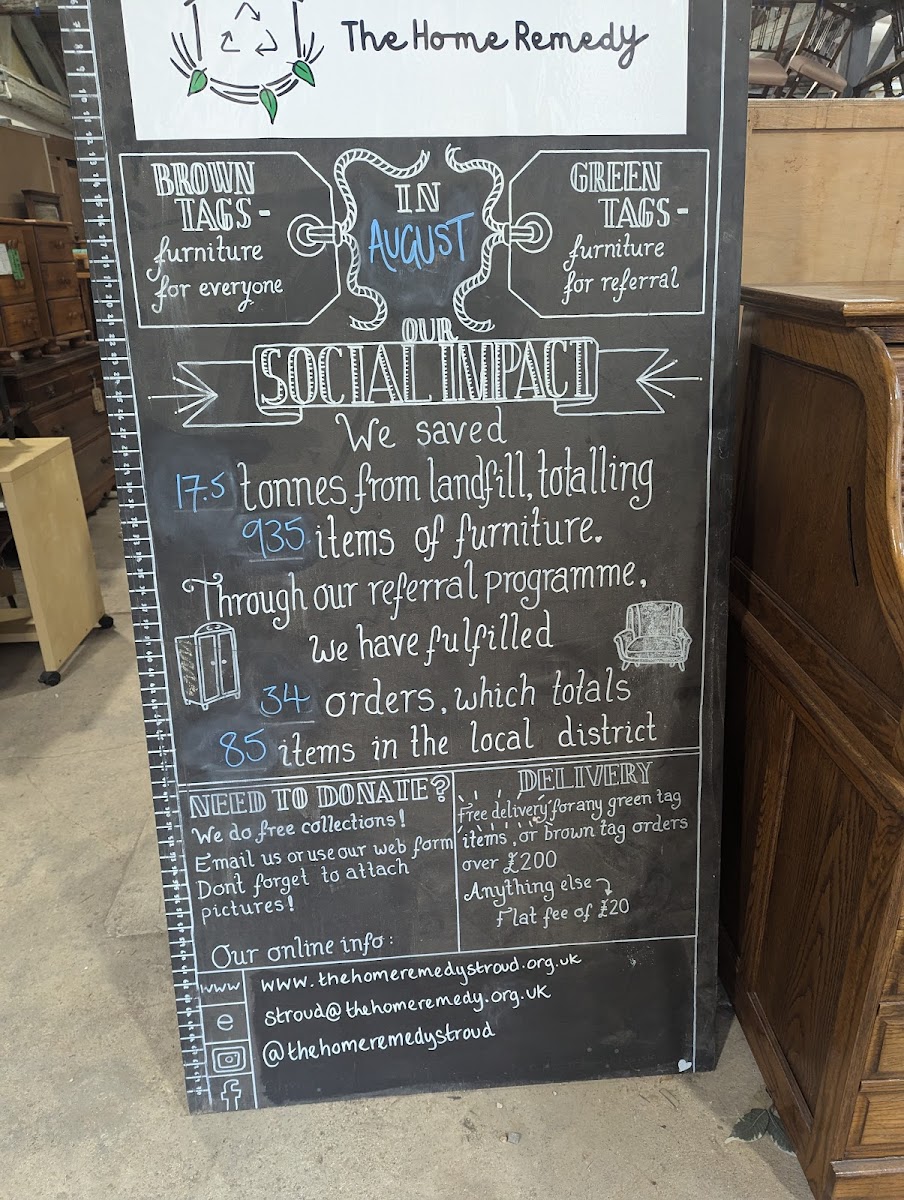 The Home Remedy
BROWN
TAGS -
furniture
for everyone
IN
AUGUST
GREEN
TAGS -
furniture
for referral
OUR
SOCIAL IMPACT
We saved
17.5 tonnes from landfill, totalling
935 items of furniture.
Through our referral programme,
we have fulfilled
34 orders, which totals
85 items in the local district
NEED TO DONATE?
We do free collections!
Email us or use our web form
Dont forget to attach
pictures!
Our online info:
DELIVERY
Free delivery for any green tag
items, or brown tag orders
over £200
Anything else
Flat fee of £20
www www.thehomeremedystroud.org.uk
e stroud@thehomeremedy.org.uk
@thehomeremedystroud
f